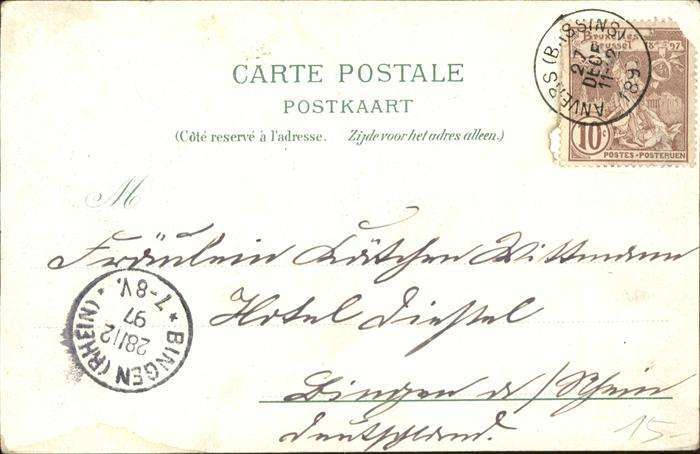 CARTE POSTALE
POSTKAART
(Côté reservé à l'adresse. Zijde voor het adres alleen.)
Bruxelles 18 97
Brussel
10c
POSTES-POSTERIJEN
ANVERS (BASSINS)
27
DECE
11-12
189
M
Fräulein Kätchen Wittmann
Hotel Diestel
Bingen a/Rhein
Deutschland.
* BINGEN (RHEIN) *
28/12
97
7-8V.
15-